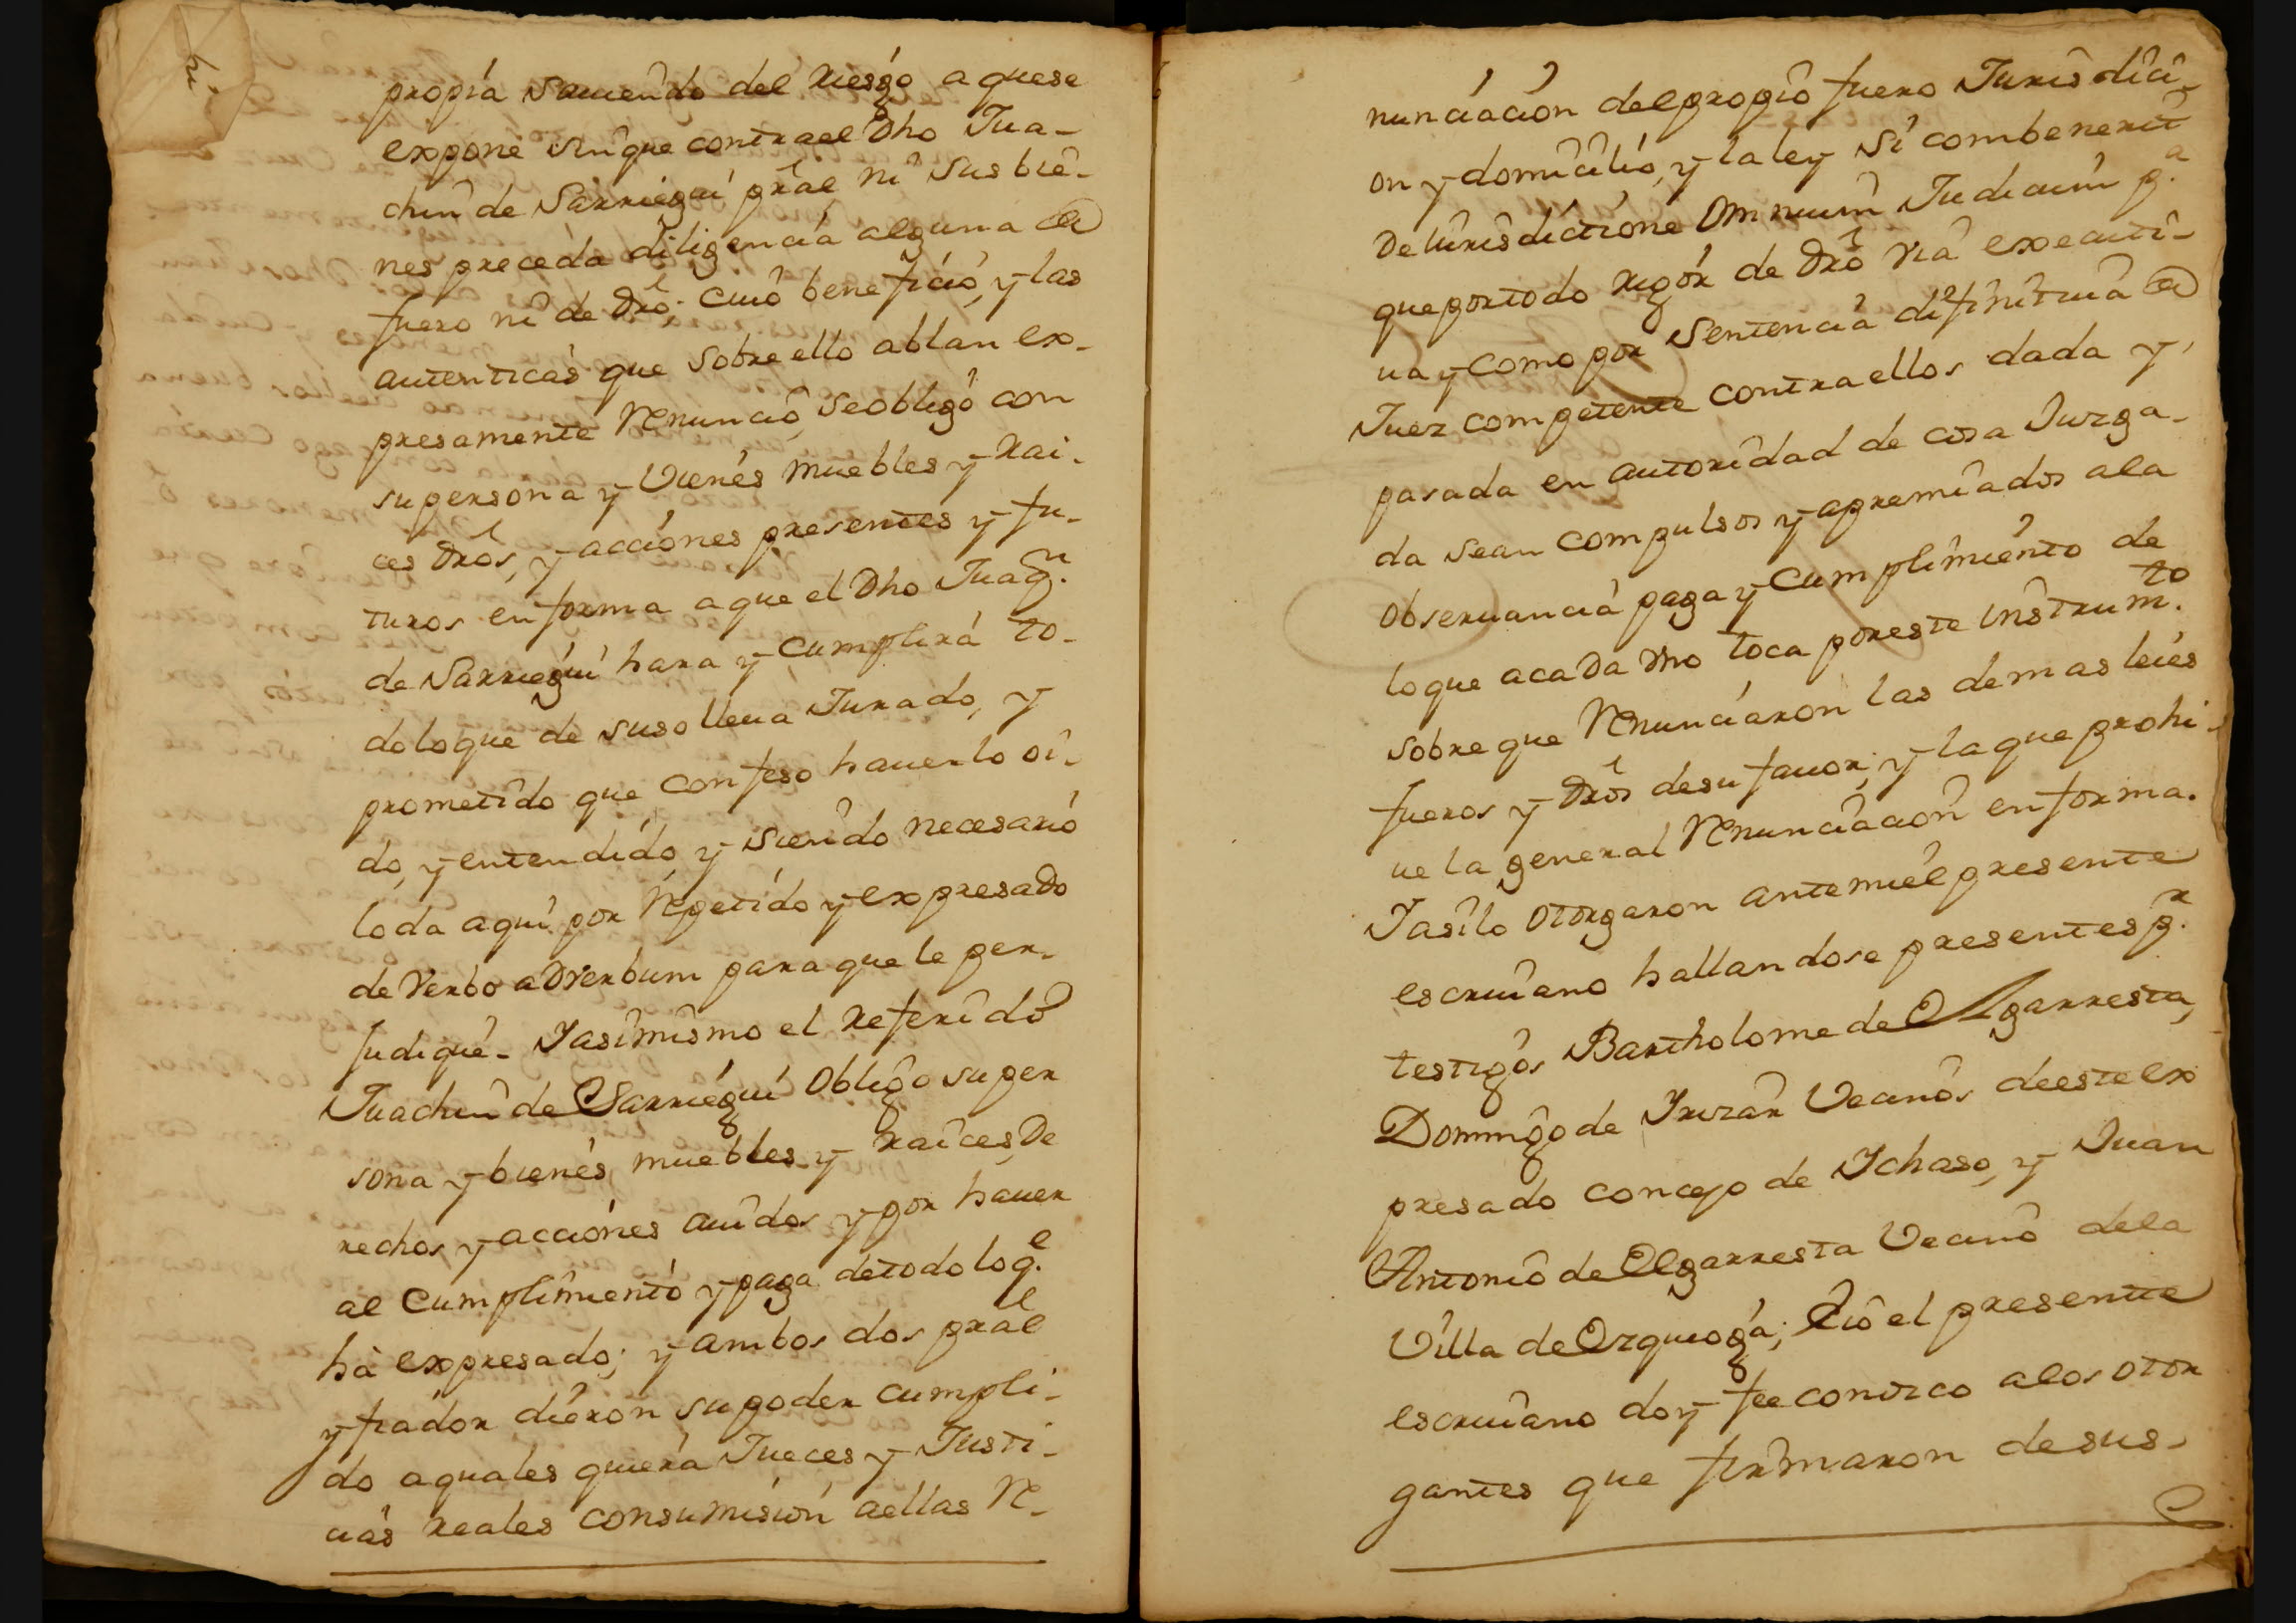 propia saviendo del riesgo a quese
expone sinque contra el dho Jua-
chin de Sarriegui pral, ni sus bie-
nes preceda diligencia alguna de
fuero ni de dro; cuio beneficio, y las
autenticas que sobre ello ablan ex-
presamente renunció, se obligó con
su persona y vienes muebles y rai-
ces dros, y acciones presentes y fu-
turos en forma a que el dho Juaqn.
de Sarriegui hara y cumplirá to-
do lo que de suso lleva Jurado, y
prometido que confeso haverlo oi-
do, y entendido, y siendo necesario
lo da aqui por repetido y expresado
de verbo adverbum para que le per-
judique- Iasimismo el referido
Juachin de Sarriegui obligo su per
sona y bienes muebles y raices, de
rechos y acciones avidos y por haver
al cumplimiento y paga de todo lo q.e
hà expresado; y ambos dos pral
y fiador dieron su poder cumpli-
do a quales quiera Jueces y Justi-
cias reales consumision aellas re-
nunciacion del propio fuero Jurisdici-
on y domicilio, y la ley si combenerit
de Iurisdictione omnium Judicum p.a
que por todo rigor de dro via executi-
va y como por sentencia difinitiva de
Juez competente contra ellos dada y
pasada en autoridad de cosa Juzga-
da sean compulsos y apremiados ala
observancia paga y cumplimiento de
lo que acada vno toca por este instrum.to
sobre que renunciaron las demas leies
fueros y dros de su favor, y la que prohi-
ve la general renunciacion en forma.
Iasilo otorgaron antemi el presente
escrivano hallandose presentes p.r
testigos Bartholome de Elgarresta,
Domingo de Irizar vecinos de este ex
presado concejo de Ichaso, y Juan
Antonio de Elgarresta vecino dela
villa de Ezquioga; Eio el presente
escrivano doy fee conozco alos otor
gantes que firmaron de sus-